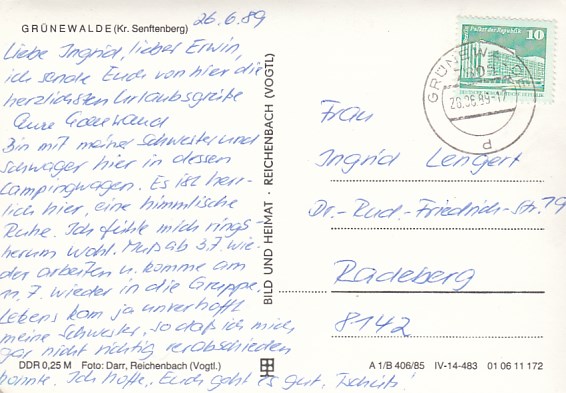 26.6.89
GRÜNEWALDE (Kr. Senftenberg)
Liebe Ingrid, lieber Erwin,
ich sende Euch von hier die
herzlichsten Urlaubsgrüße
Eure
Bin mit meiner Schwester und
Schwager hier in dessen
Campingwagen. Es ist herr-
lich hier, eine himmlische
Ruhe. Ich fühle mich rings-
herum wohl. Muß ab 3.7. wie-
der arbeiten u. komme am
11.7. wieder in die Gruppe.
kam ja unverhofft
meine Schwester, so daß ich mich
gar nicht richtig verabschieden
konnte. Ich hoffe, Euch geht es gut. Tschüß!
DDR 0,25 M Foto: Darr, Reichenbach (Vogtl.)
BILD UND HEIMAT · REICHENBACH (VOGTL)
Palast der Republik
10
GRÜNEWALDE
26.06.89-17
d
Frau
Ingrid Lengert
Dr.-Rud.-Friedrich-Str. 79
Radeberg
8142
A 1/B 406/85 IV-14-483 01 06 11 172